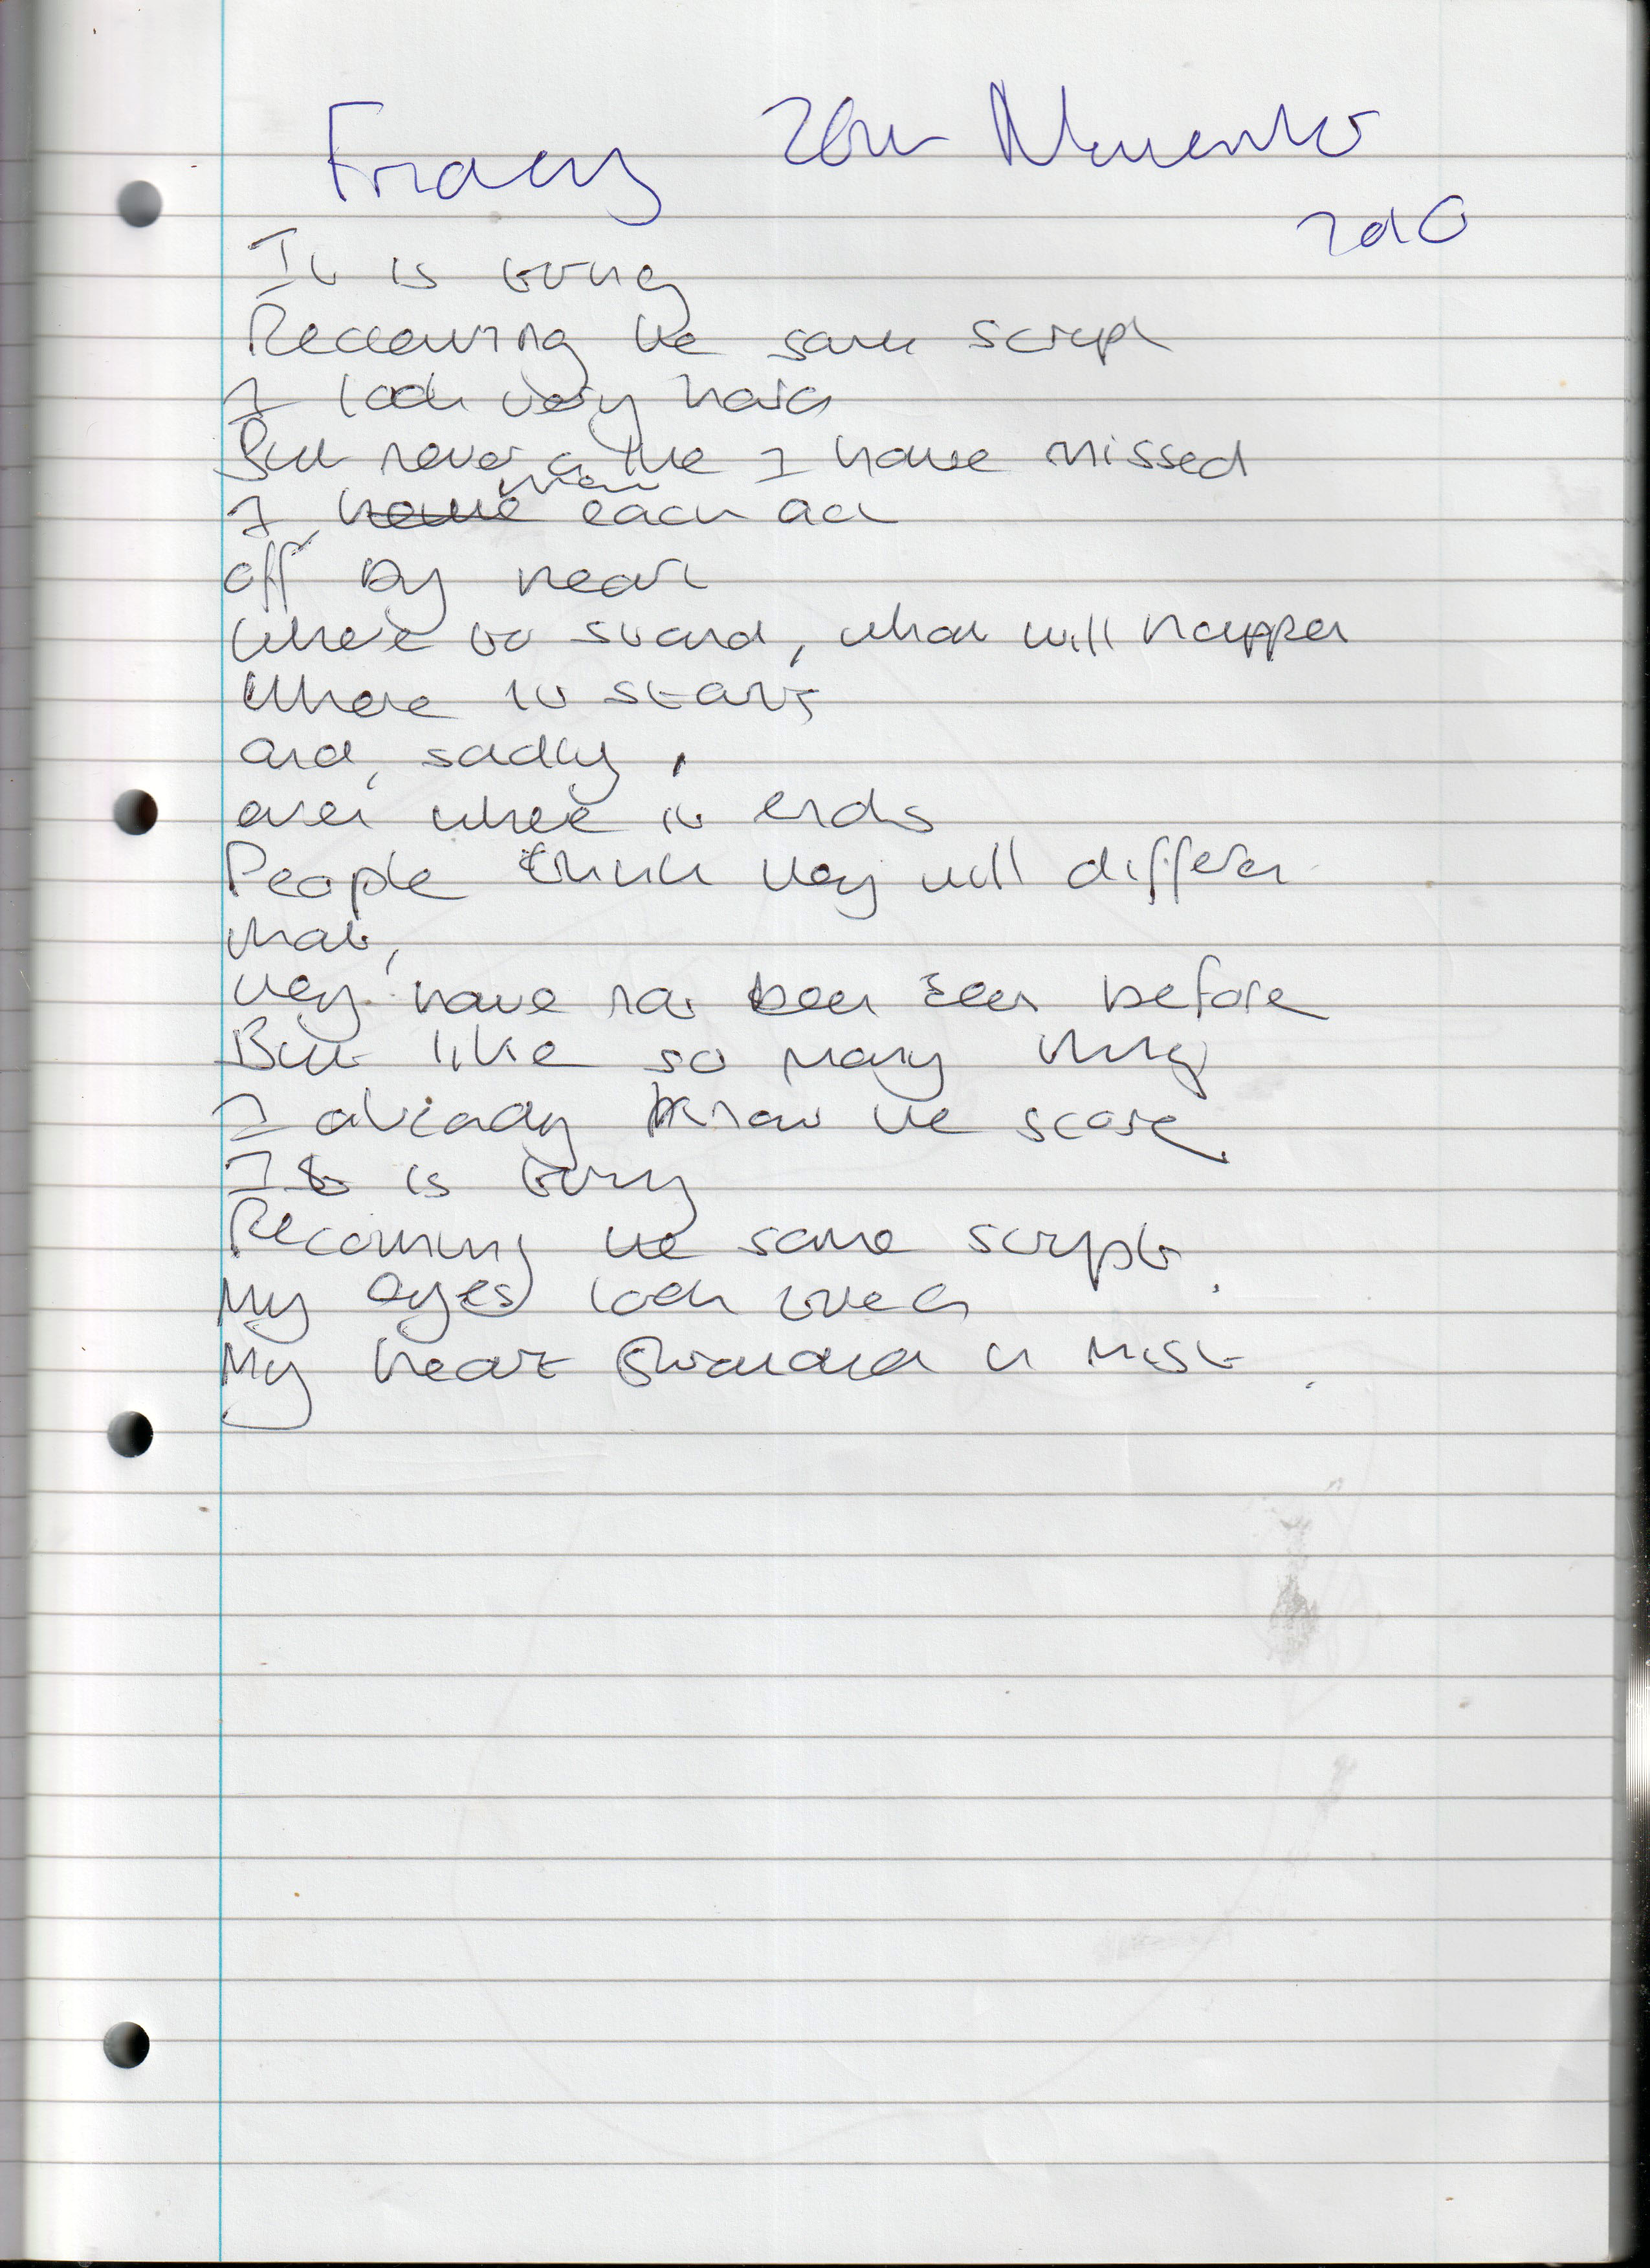 Friday 26th November
2010
It is tiring
Receiving the same script
I look very hard
But never a line I have missed
I know each act
off by heart
where to stand, what will happen
Where it starts
and, sadly,
even where it ends
People think they will differ
that,
they have not been seen before
But like so many things
I already know the score
It is tiring
Receiving the same script.
My eyes look tired
My heart shrouded in mist.